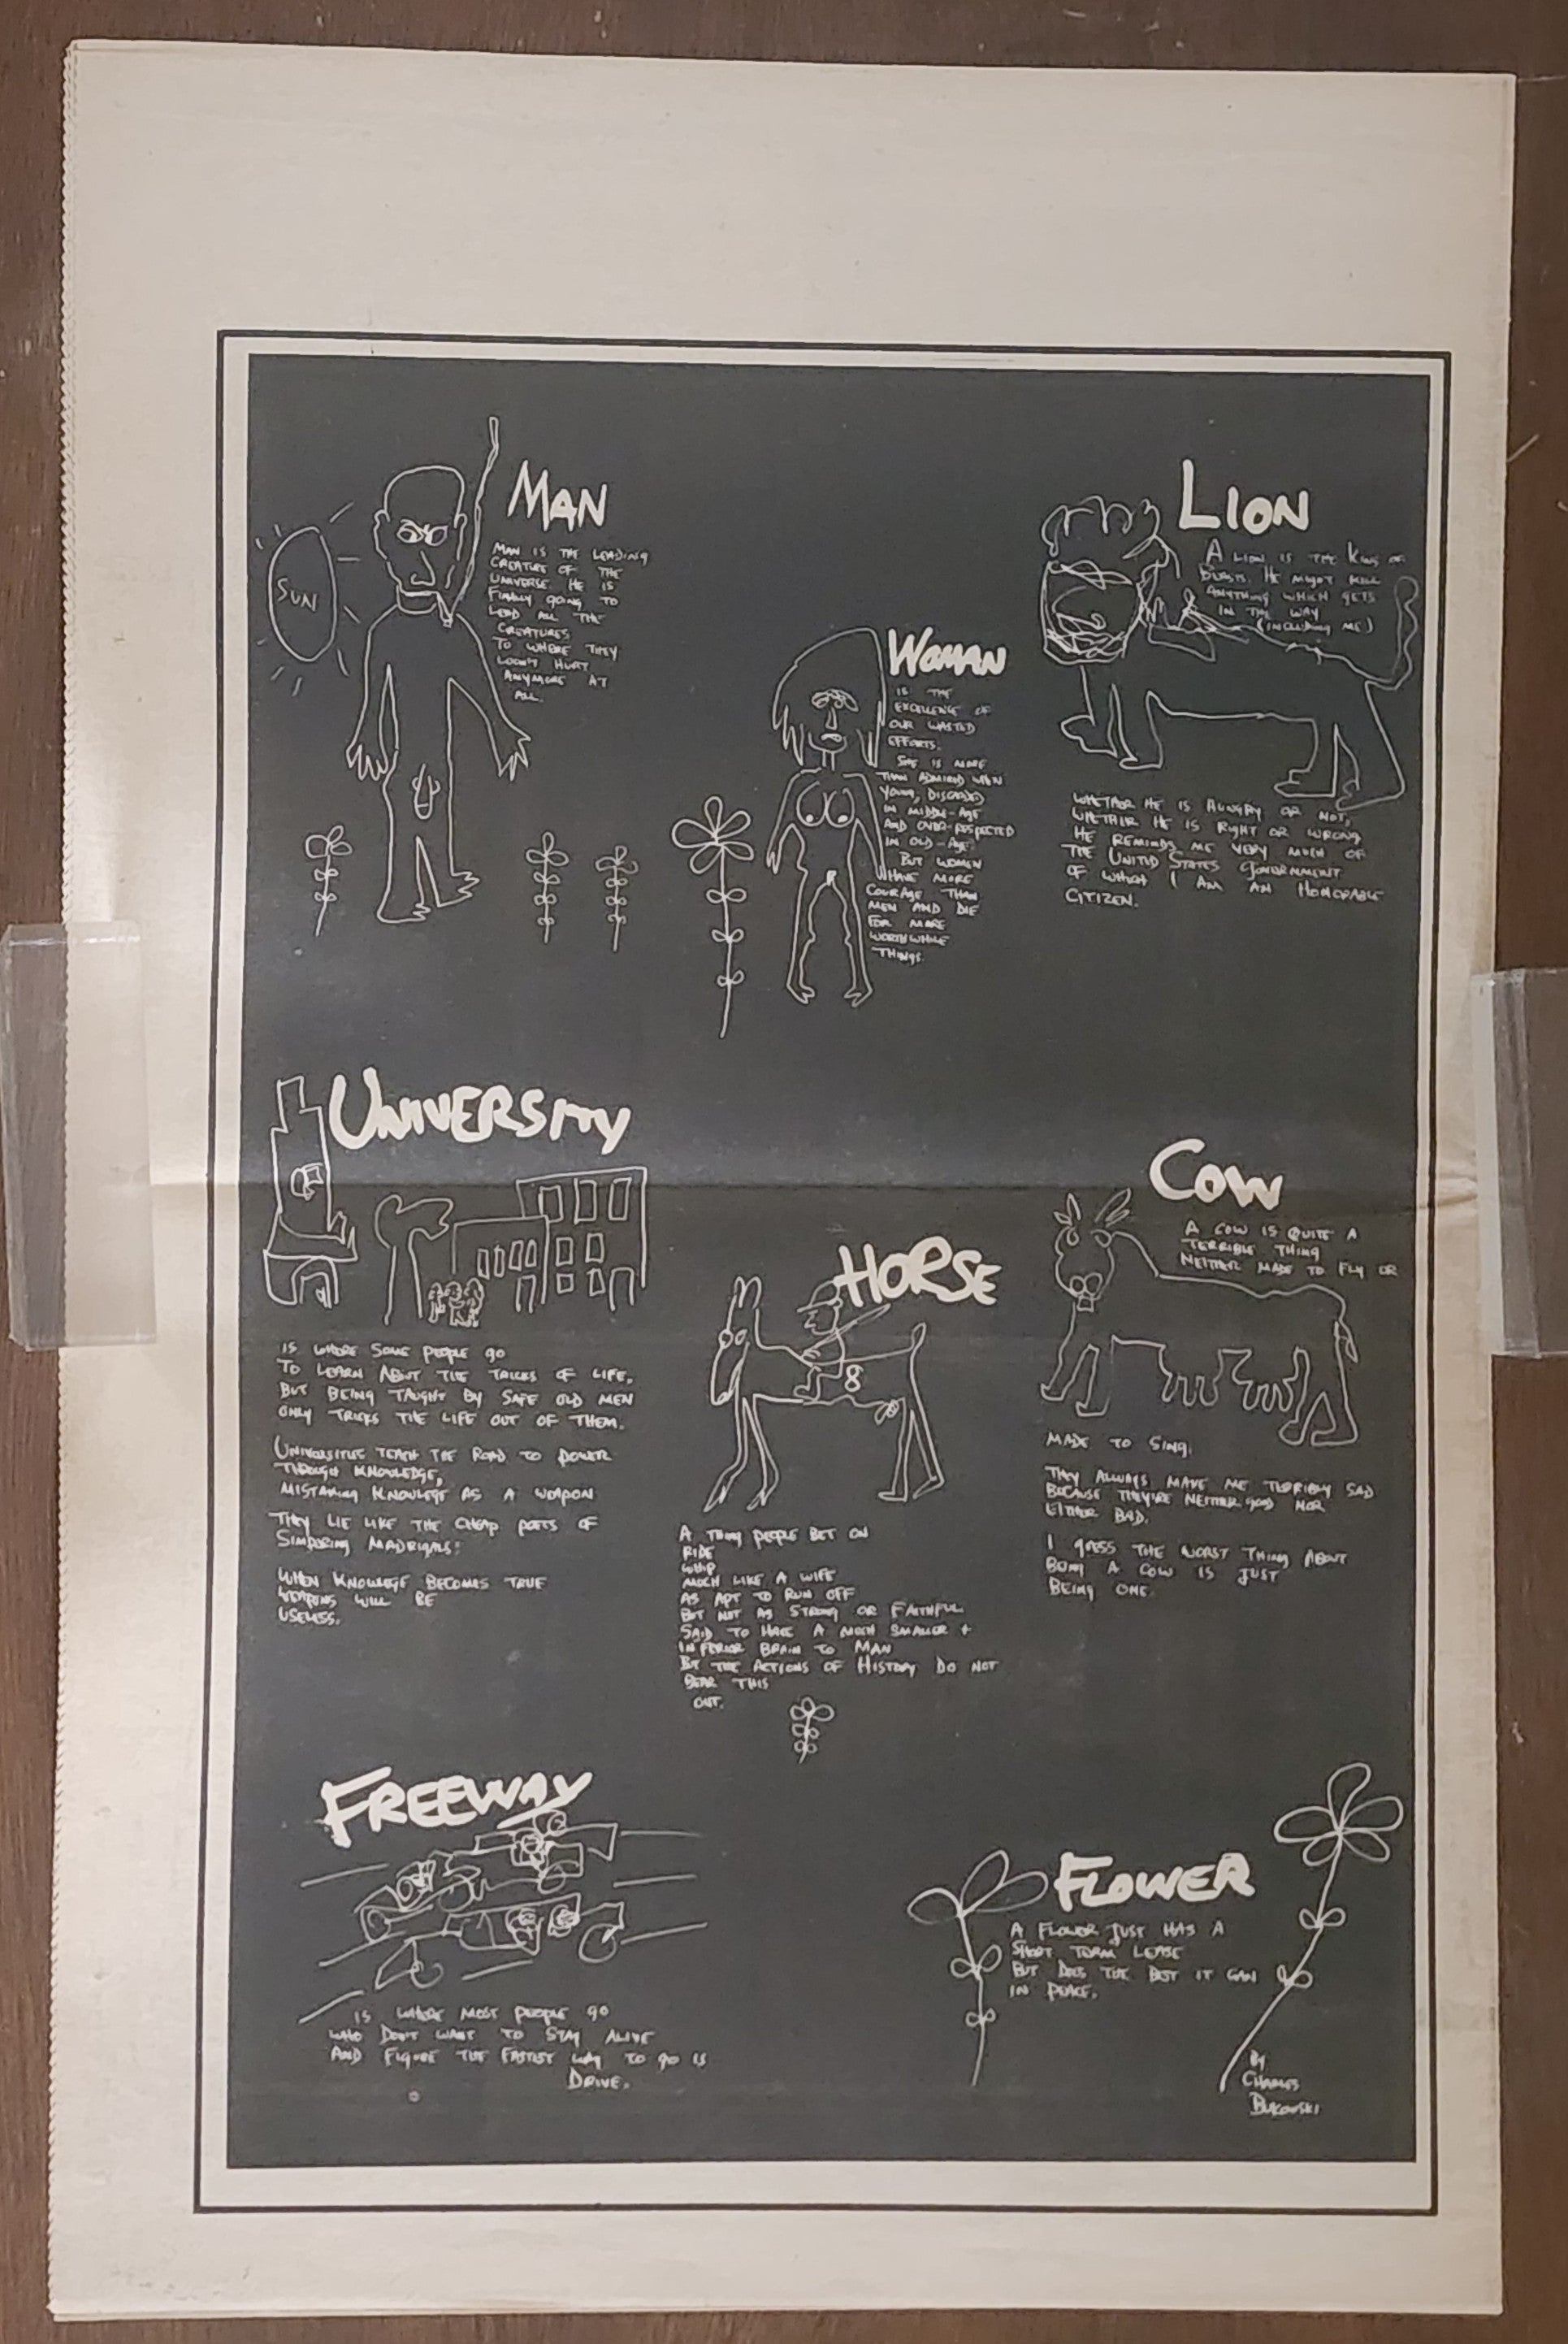 SUN
MAN
MAN IS THE LEADING
CREATURE OF THE
UNIVERSE. HE IS
FINALLY GOING TO
LEAD ALL THE
CREATURES
TO WHERE THEY
WON'T HURT
ANYMORE AT
ALL.
WOMAN
IS THE
EXCELLENCE OF
OUR WASTED
EFFORTS.
SHE IS MORE
THAN ADMIRED WHEN
YOUNG, DISCARDED
IN MIDDLE-AGE
AND OVER-RESPECTED
IN OLD-AGE.
BUT WOMEN
HAVE MORE
COURAGE THAN
MEN AND DIE
FOR MORE
WORTHWHILE
THINGS.
LION
A LION IS THE KING OF
BEASTS. HE MIGHT KILL
ANYTHING WHICH GETS
IN THE WAY
(INCLUDING ME)
WHETHER HE IS HUNGRY OR NOT,
WHETHER HE IS RIGHT OR WRONG
HE REMINDS ME VERY MUCH OF
THE UNITED STATES GOVERNMENT
OF WHICH I AM AN HONORABLE
CITIZEN.
UNIVERSITY
IS WHERE SOME PEOPLE GO
TO LEARN ABOUT THE TRICKS OF LIFE,
BUT BEING TAUGHT BY SAFE OLD MEN
ONLY TRICKS THE LIFE OUT OF THEM.
UNIVERSITIES TEACH THE ROAD TO POWER
THROUGH KNOWLEDGE,
MISTAKING KNOWLEGE AS A WEAPON
THEY LIE LIKE THE CHEAP POETS OF
SIMPERING MADRIGALS:
WHEN KNOWLEGE BECOMES TRUE
WEAPONS WILL BE
USELESS.
HORSE
8
A THING PEOPLE BET ON
RIDE
WHIP
MUCH LIKE A WIFE
AS APT TO RUN OFF
BUT NOT AS STRONG OR FAITHFUL
SAID TO HAVE A MUCH SMALLER +
INFERIOR BRAIN TO MAN
BUT THE ACTIONS OF HISTORY DO NOT
BEAR THIS
OUT.
COW
A COW IS QUITE A
TERRIBLE THING
NEITHER MADE TO FLY OR
MADE TO SING.
THEY ALWAYS MAKE ME TERRIBLY SAD
BECAUSE THEY'RE NEITHER GOOD NOR
EITHER BAD.
I GUESS THE WORST THING ABOUT
BEING A COW IS JUST
BEING ONE.
FREEWAY
IS WHERE MOST PEOPLE GO
WHO DON'T WANT TO STAY ALIVE
AND FIGURE THE FASTEST WAY TO GO IS
DRIVE.
FLOWER
A FLOWER JUST HAS A
SHORT TERM LEASE
BUT DOES THE BEST IT CAN
IN PEACE.
BY
CHARLES
BUKOWSKI